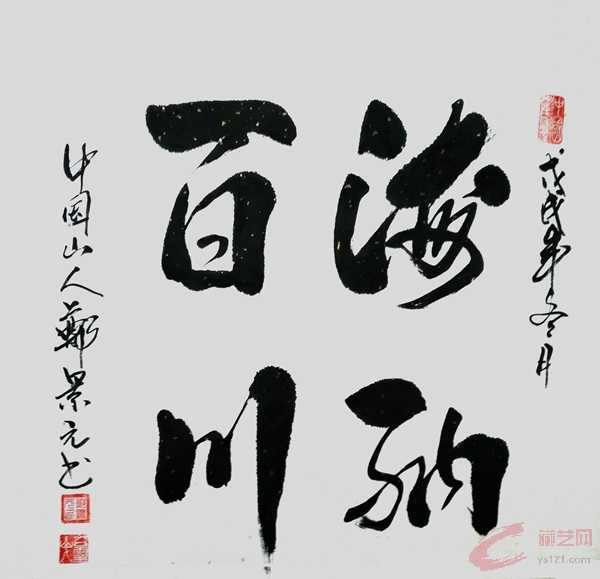 戊戌年冬月
海納
百川
中国山人鄭景元书
藏艺网
ys121.com